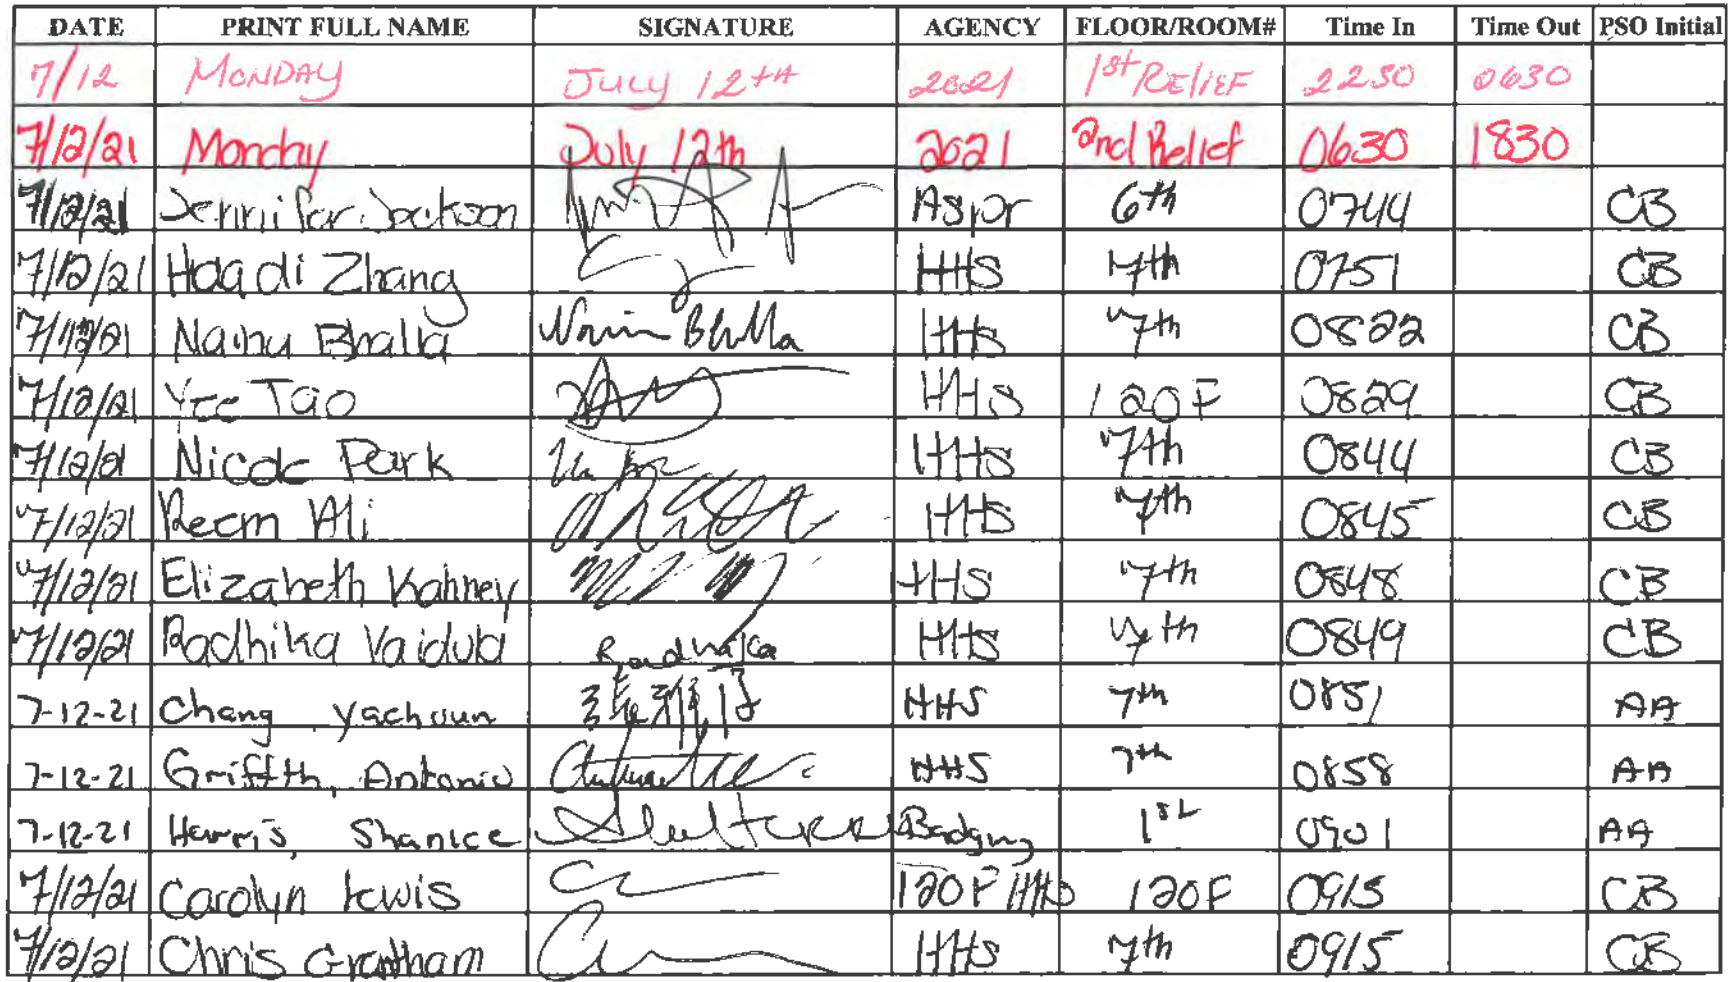 DATE PRINT FULL NAME SIGNATURE AGENCY FLOOR/ROOM# Time In Time Out PSO Initial
7/12 MONDAY JULY 12TH 2021 1st RELIEF 2230 0630
7/12/21 Monday July 12th 2021 2nd Relief 0630 1830
7/12/21 Jennifer Jackson Aspr 6th 0744 CB
7/12/21 Haodi Zhang HHS 7th 0751 CB
7/12/21 Nainu Bhalla HHS 7th 0822 CB
7/12/21 Yee Tao HHS 120F 0829 CB
7/12/21 Nicole Park HHS 7th 0844 CB
7/12/21 Reem Ali HHS 7th 0845 CB
7/12/21 Elizabeth Kahney HHS 7th 0848 CB
7/12/21 Radhika Radhika HHS 7th 0849 CB
7-12-21 Chang HHS 7th 0851 AA
7-12-21 Griffth, Antonio HHS 7th 0858 AA
7-12-21 Harris, Shanice Badging 1st 0901 AA
7/12/21 Carolyn Lewis 120F HHS 120F 0915 CB
7/12/21 Chris Grantham HHS 7th 0915 CB